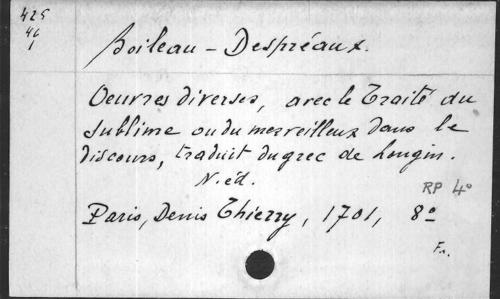 425
46
1
Boileau - Despréaux.
Oeuvres diverses, avec le Traité du
sublime ou du merveilleux dans le
discours, traduit du grec de Longin.
N. éd.
RP 4°
Paris, Denis Thierry, 1701, 8°
Fr.